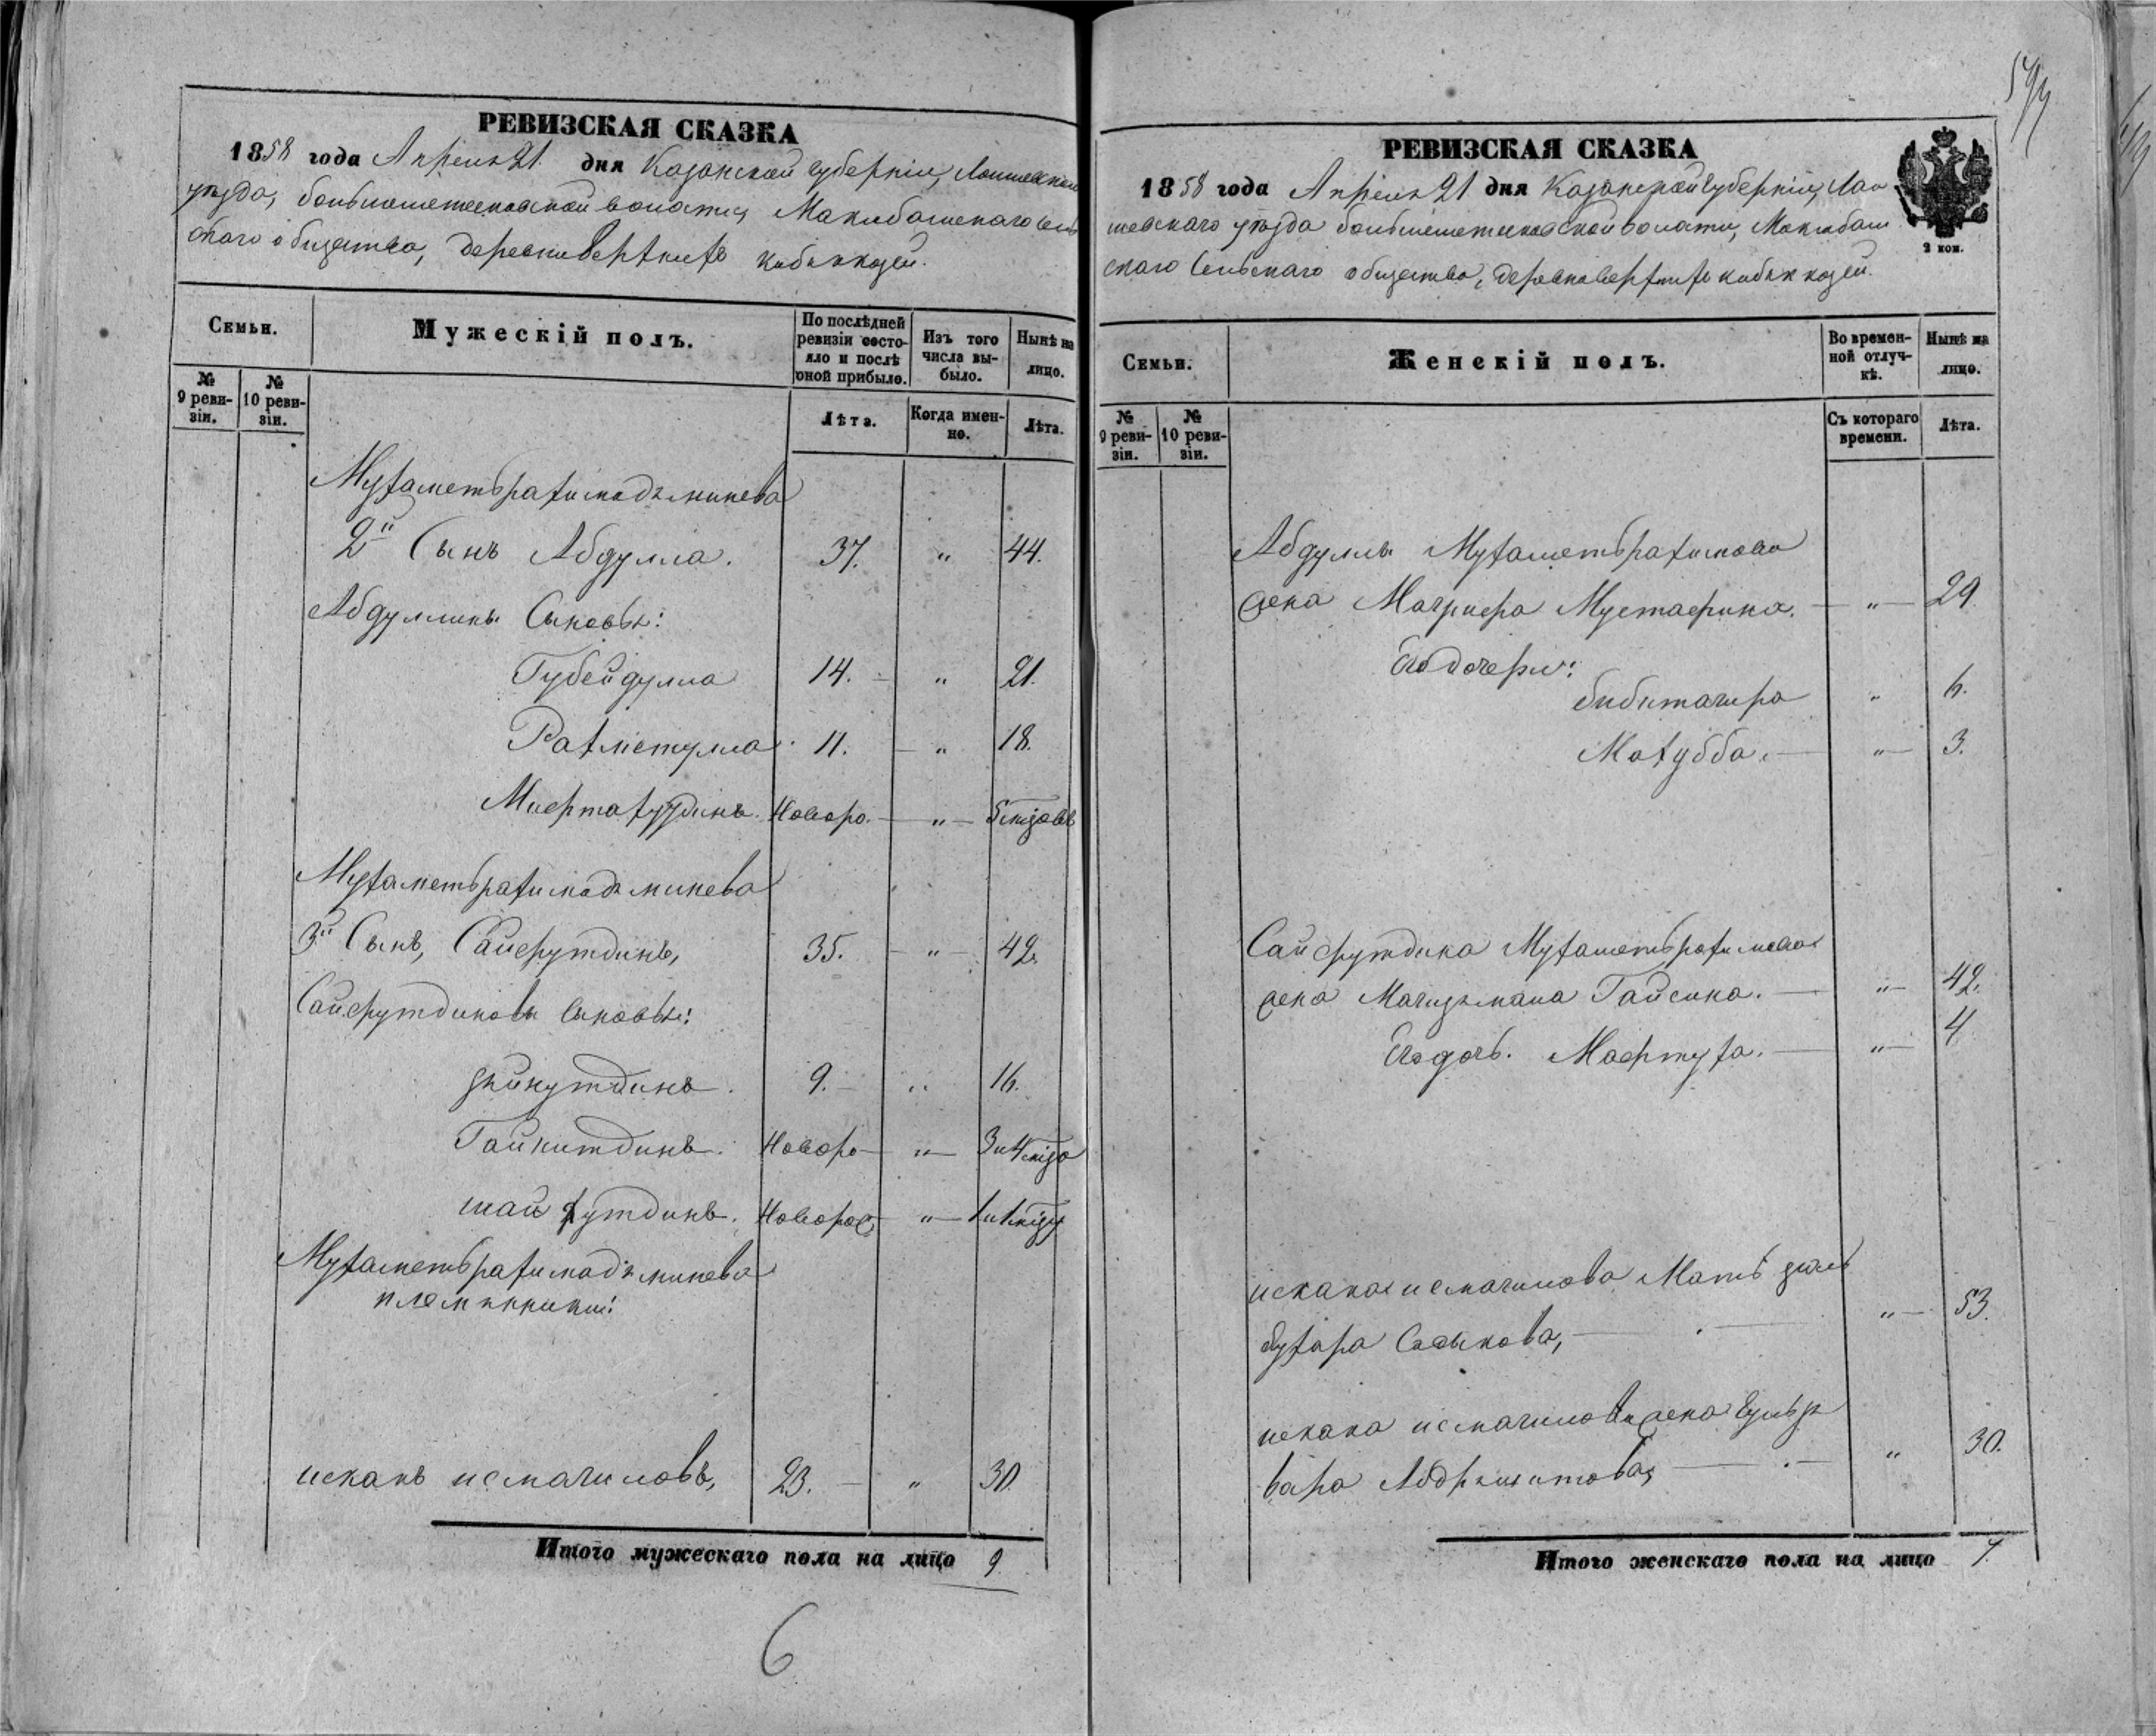 РЕВИЗСКАЯ СКАЗКА
1858 года Апреля 21 дня Казанской губерніи, Лаишевскаго
уезда, большеметескской волости, Макабашенскаго сель
скаго общества, деревни верхнихъ кибякъ козей.
Семьи.
Мужескій полъ.
По послѣдней ревизіи состояло и послѣ оной прибыло.
Изъ того числа выбыло.
Нынѣ на лицо.
№ 9 ревизіи.
№ 10 ревизіи.
Лѣта.
Когда именно.
Лѣта.
Мухаметьрахимадъ минева
2й Сынъ Абдулла. 37. " 44.
Абдуллины Сыновья:
Губейдулла 14. " 21.
Рахметулла 11. " 18.
Мифтахуддинъ. Новоро. " 5
Мухаметьрахимадъ минева
3й Сынъ, Сайфутдинъ, 35. " 42.
Сайфутдиновы сыновья:
зяйнутдинъ. 9. " 16.
Гайнитдинъ. Новоро " 3 и 4
шайхутдинъ. Новорож " 1 и 1
Мухаметьрахимадъ минева
племянники:
искакъ исмагиловъ, 23. " 30.
Итого мужескаго пола на лицо 9.
6
РЕВИЗСКАЯ СКАЗКА
1858 года Апреля 21 дня Казанской губерніи, Лаи
шевскаго уезда большеметескской волости, Макабаш
скаго Сельскаго общества, деревни верхнихъ кибяк козей.
2 коп.
Семьи.
Женскій полъ.
Во временной отлучкѣ.
Нынѣ на лицо.
№ 9 ревизіи.
№ 10 ревизіи.
Съ котораго времени.
Лѣта.
Абдуллы Мухаметьрахимова
жена Магруфа Мустафина. " 29.
Его дочери:
бибитагира " 6.
Махубба. " 3.
Сайфутдина Мухаметьрахимова
жена Магизямала Гайсина. " 42.
Его дочь. Мафтуха. " 4
искака исмагилова Мать зюль
бухара Садыкова, " 53.
искака исмагилова жена Гульзя
вара Абдряшитова, " 30.
Итого женскаго пола на лицо 7.